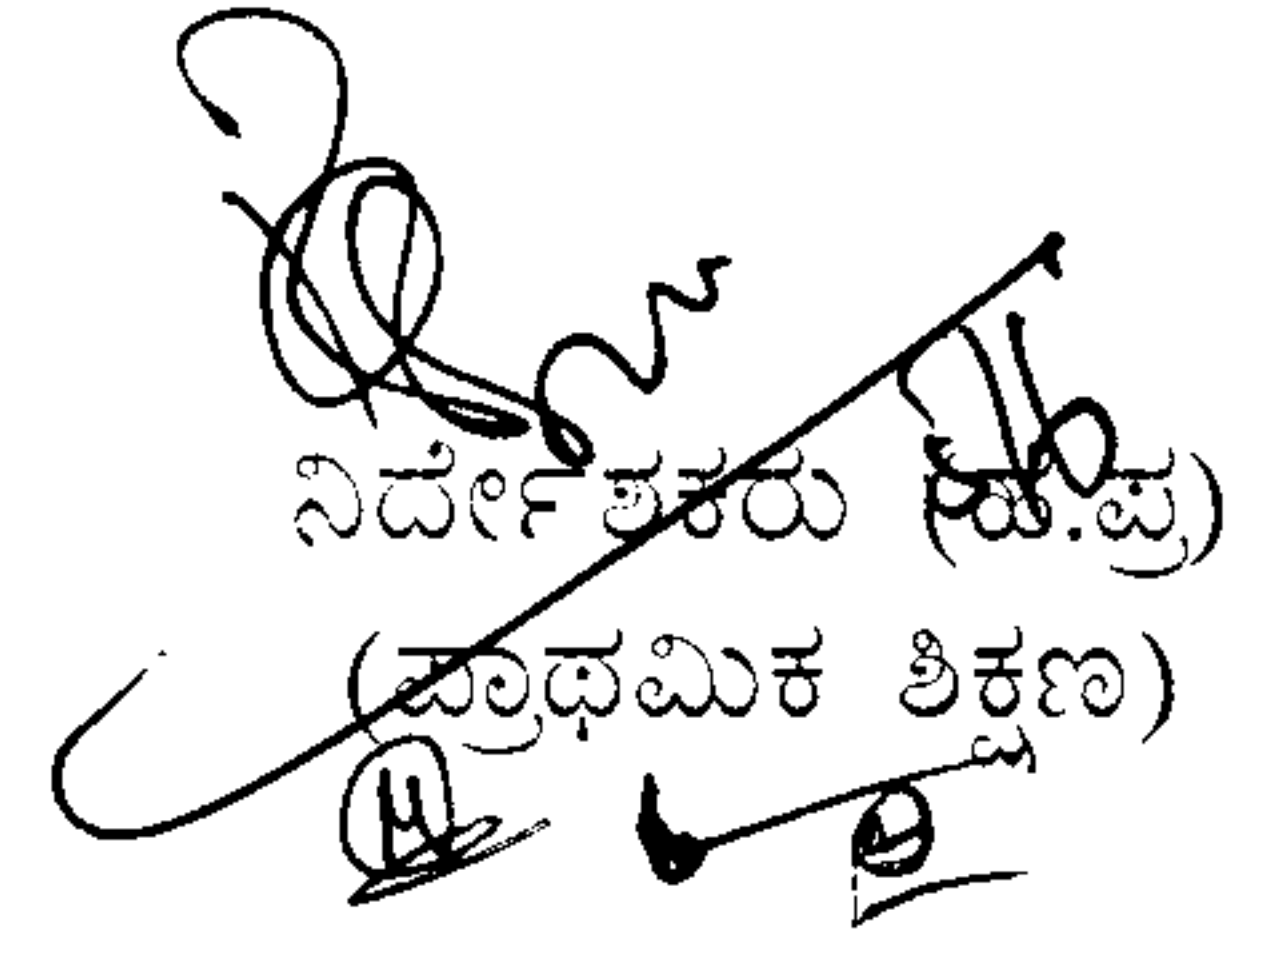 ನಿರ್ದೇಶಕರು (ಪ್ರ.ಪ್ರ)
(ಪ್ರಾಥಮಿಕ ಶಿಕ್ಷಣ)